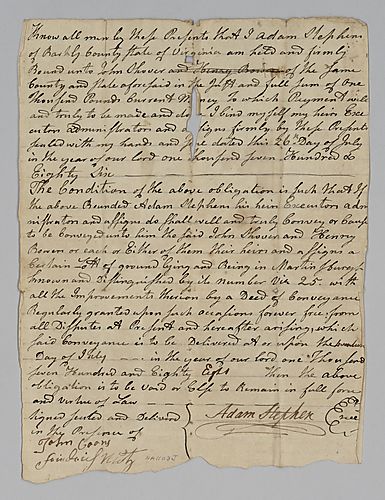 Know all men by these Presents that I Adam Stephen
of Barkly County State of Virginia am held and firmly
Bound unto John Shover and Henry Bowen of the Same
County and State aforesaid in the Just and full Sum of One
Thousand Pounds Current Money to which Payment well
and truly to be made and done I bind myself my heirs Exe
cutors administrators and assigns firmly by these Presents
Sealed with my hands and dated this 26th Day of July
in the year of our lord one thousand seven Hundred &
Eighty Six
The Condition of the above obligation is Such that If
the above Bounded Adam Stephen his heirs Executors Adm
inistrators and assigns do Shall well and truly Convey or Cause
to be Conveyed unto them the said John Shover and Henry
Bowen or each or Either of them their heirs and assigns a
Certain Lott of ground Lying and Being in Martinsburgh
known and Distinguished by its number Viz 25 with
all the Improvements thereon by a Deed of Conveyance
Regularly granted upon such occasions forever free from
all Disputes at Present and hereafter arising, which
said Conveyance is to be Delivered at or upon the
Day of July in the year of our lord one Thousand
seven Hundred and Eighty Then the above
obligation is to be Void or Else to Remain in full force
and Virtue of Law
Signed Sealed and Delivered
in the Presence of
Adam Stephen
John Coons